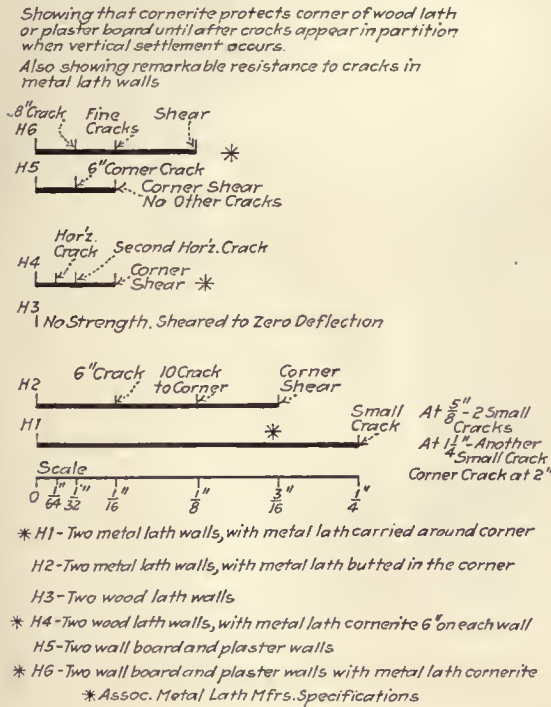 Showing that cornerite protects corner of wood lath
or plaster board until after cracks appear in partition
when vertical settlement occurs.
Also showing remarkable resistance to cracks in
metal lath walls
8" Crack Fine Cracks Shear
H6
*
H5
6" Corner Crack
Corner Shear
No Other Cracks
Hor'z. Crack
Second Hor'z. Crack
H4
Corner Shear *
H3
No Strength. Sheared to Zero Deflection
6" Crack 10 Crack to Corner Corner Shear
H2
H1
*
Small Crack
At 5/8" - 2 Small Cracks
At 1 1/4" - Another Small Crack
Corner Crack at 2"
Scale
0 1/64" 1/32" 1/16" 1/8" 3/16" 1/4"
* H1 - Two metal lath walls, with metal lath carried around corner
H2 - Two metal lath walls, with metal lath butted in the corner
H3 - Two wood lath walls
* H4 - Two wood lath walls, with metal lath cornerite 6" on each wall
H5 - Two wall board and plaster walls
* H6 - Two wall board and plaster walls with metal lath cornerite
* Assoc. Metal Lath Mfrs. Specifications